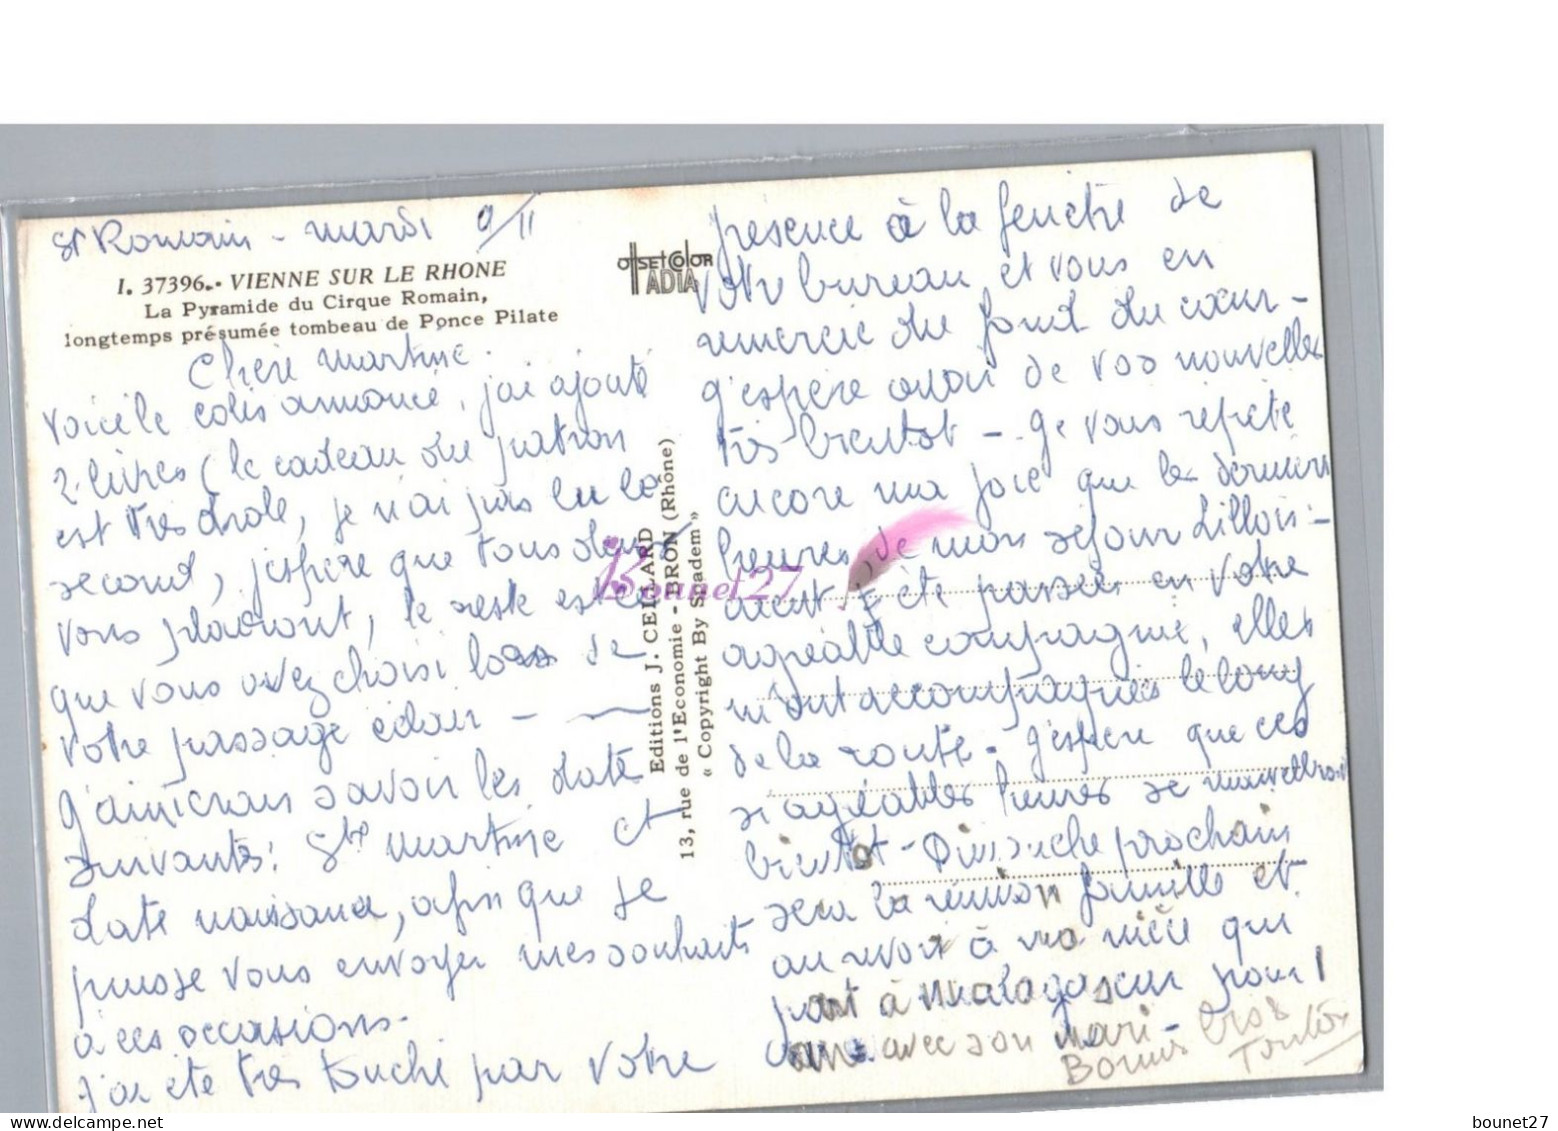 St Romain - mardi 9/11
I. 37396.- VIENNE SUR LE RHONE
La Pyramide du Cirque Romain,
longtemps présumée tombeau de Ponce Pilate
OffSEtCOlOR
IADIA
Chère Martine.
Voici le colis annoncé, j'ai ajouté
2 livres (le cadeau du patron
est très drôle, je n'ai pas lu le
second, j'espère que tous deux
vous plairont, le reste est ce
que vous avez choisi lors de
votre passage éclair -
J'aimerais savoir les date
suivantes: Ste Martine et
date naissance, afin que je
puisse vous envoyer mes souhaits
à ces occasions.
J'ai été très touché par votre
Editions J. CELLARD
13, rue de l'Economie - BRON (Rhône)
« Copyright By Spadem »
présence à la fenêtre de
votre bureau et vous en
remercie du fond du cœur -
J'espère avoir de vos nouvelles
très bientôt - Je vous répète
encore ma joie que les dernières
heures de mon séjour Lillois -
aient été passées en votre
agréable compagnie, elles
m'ont accompagnées le long
de la route - J'espère que ces
si agréables heures se renouvelleront
bientôt - Dimanche prochain
sera la réunion famille et
au revoir à ma nièce qui
part à Madagascar pour 1
ans avec son mari -
Bonnes
Bounet27
bounet27